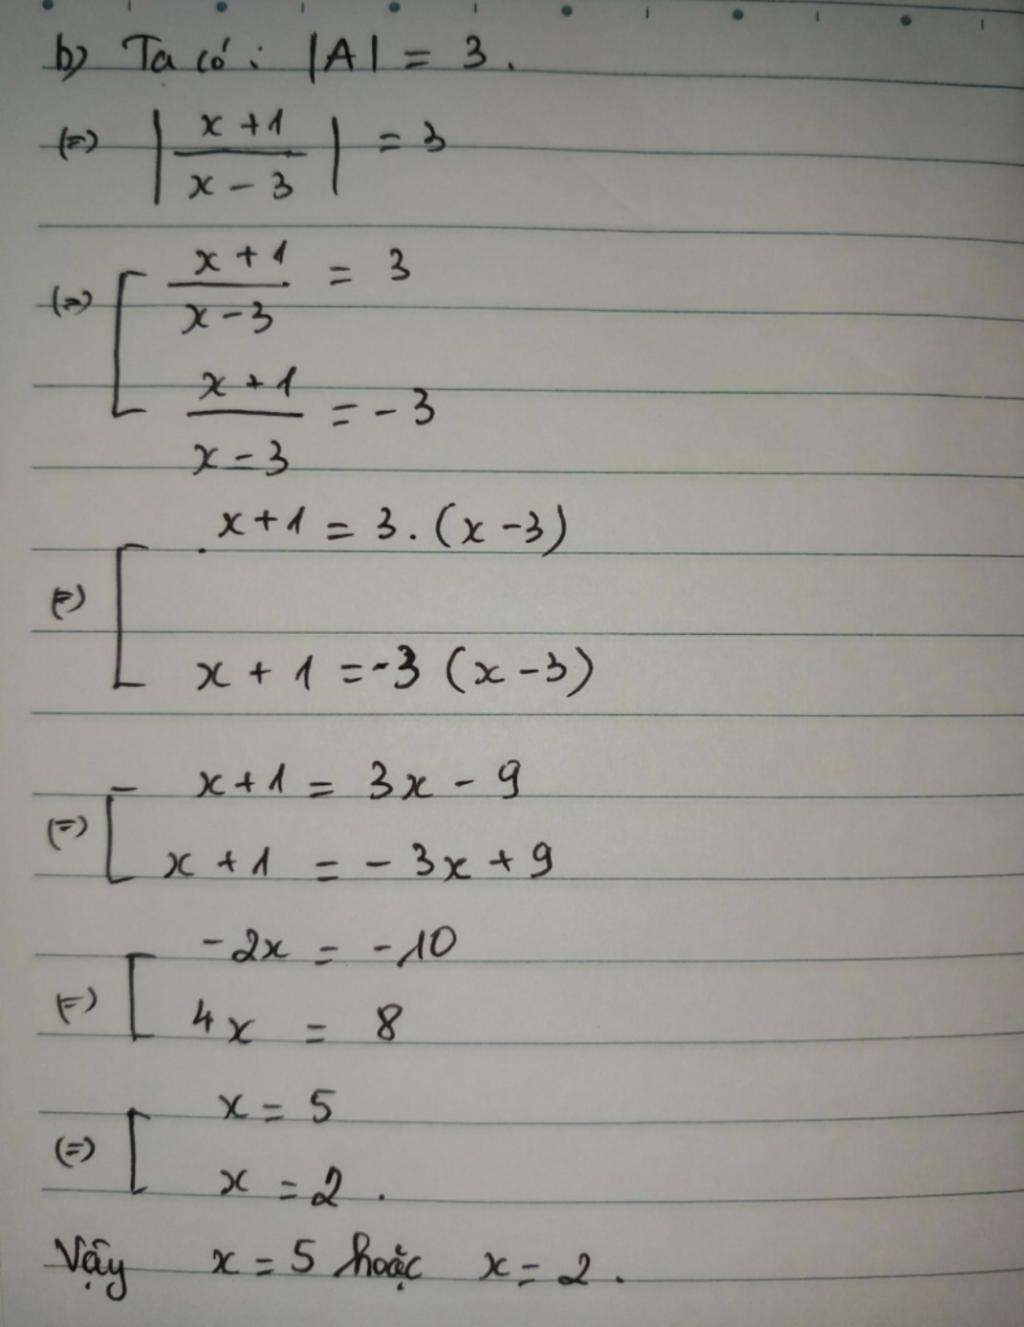 b) Ta có: |A| = 3.
(=) | x+1 / x-3 | = 3
(=) [ x+1 / x-3 = 3
x+1 / x-3 = -3
(=) [ x+1 = 3.(x-3)
x+1 = -3 (x-3)
(=) [ x+1 = 3x - 9
x+1 = -3x + 9
(=) [ -2x = -10
4x = 8
(=) [ x = 5
x = 2.
Vậy x = 5 hoặc x = 2.